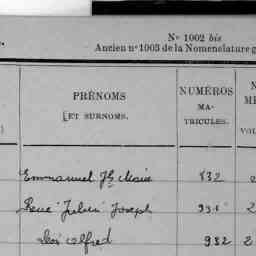 N° 1002 bis
Ancien n° 1003 de la Nomenclature g
PRÉNOMS
ET SURNOMS.
NUMÉROS
MA-
TRICULES.
N
M
VOL
Emmanuel Jh Marie 832
René Julien Joseph 931 2
Léon Alfred 982 2